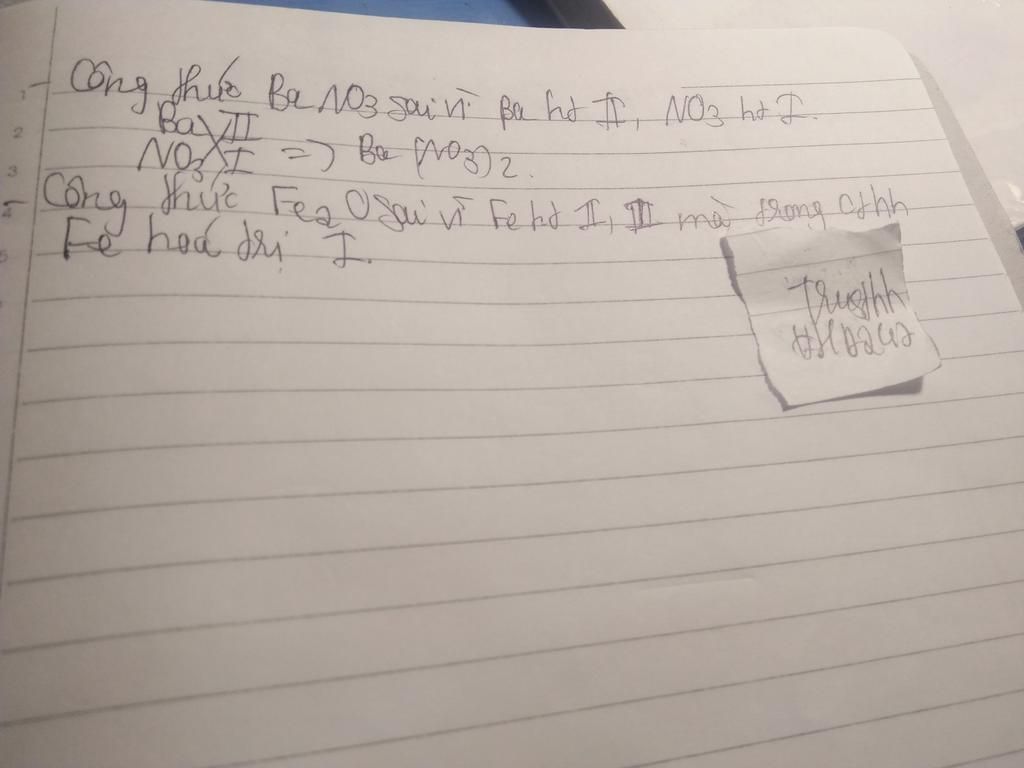 Công thức BaNO3 sai vì Ba ht II, NO3 ht I.
Ba II
NO3 I => Ba(NO3)2.
Công thức Fe2O sai vì Fe ht II, III mà trong cthh
Fe hoá trị I.